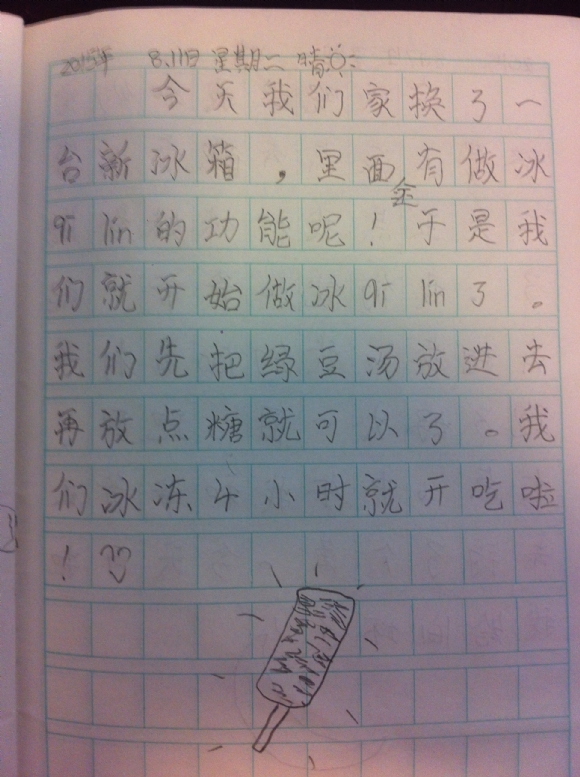 2015年 8.11日 星期二 晴
今天我们家换了一
台新冰箱,里面有做冰
qi lin的功能呢!于是我
们就开始做冰qi lin了。
我们先把绿豆汤放进去
再放点糖就可以了。我
们冰冻4小时就开吃啦
!